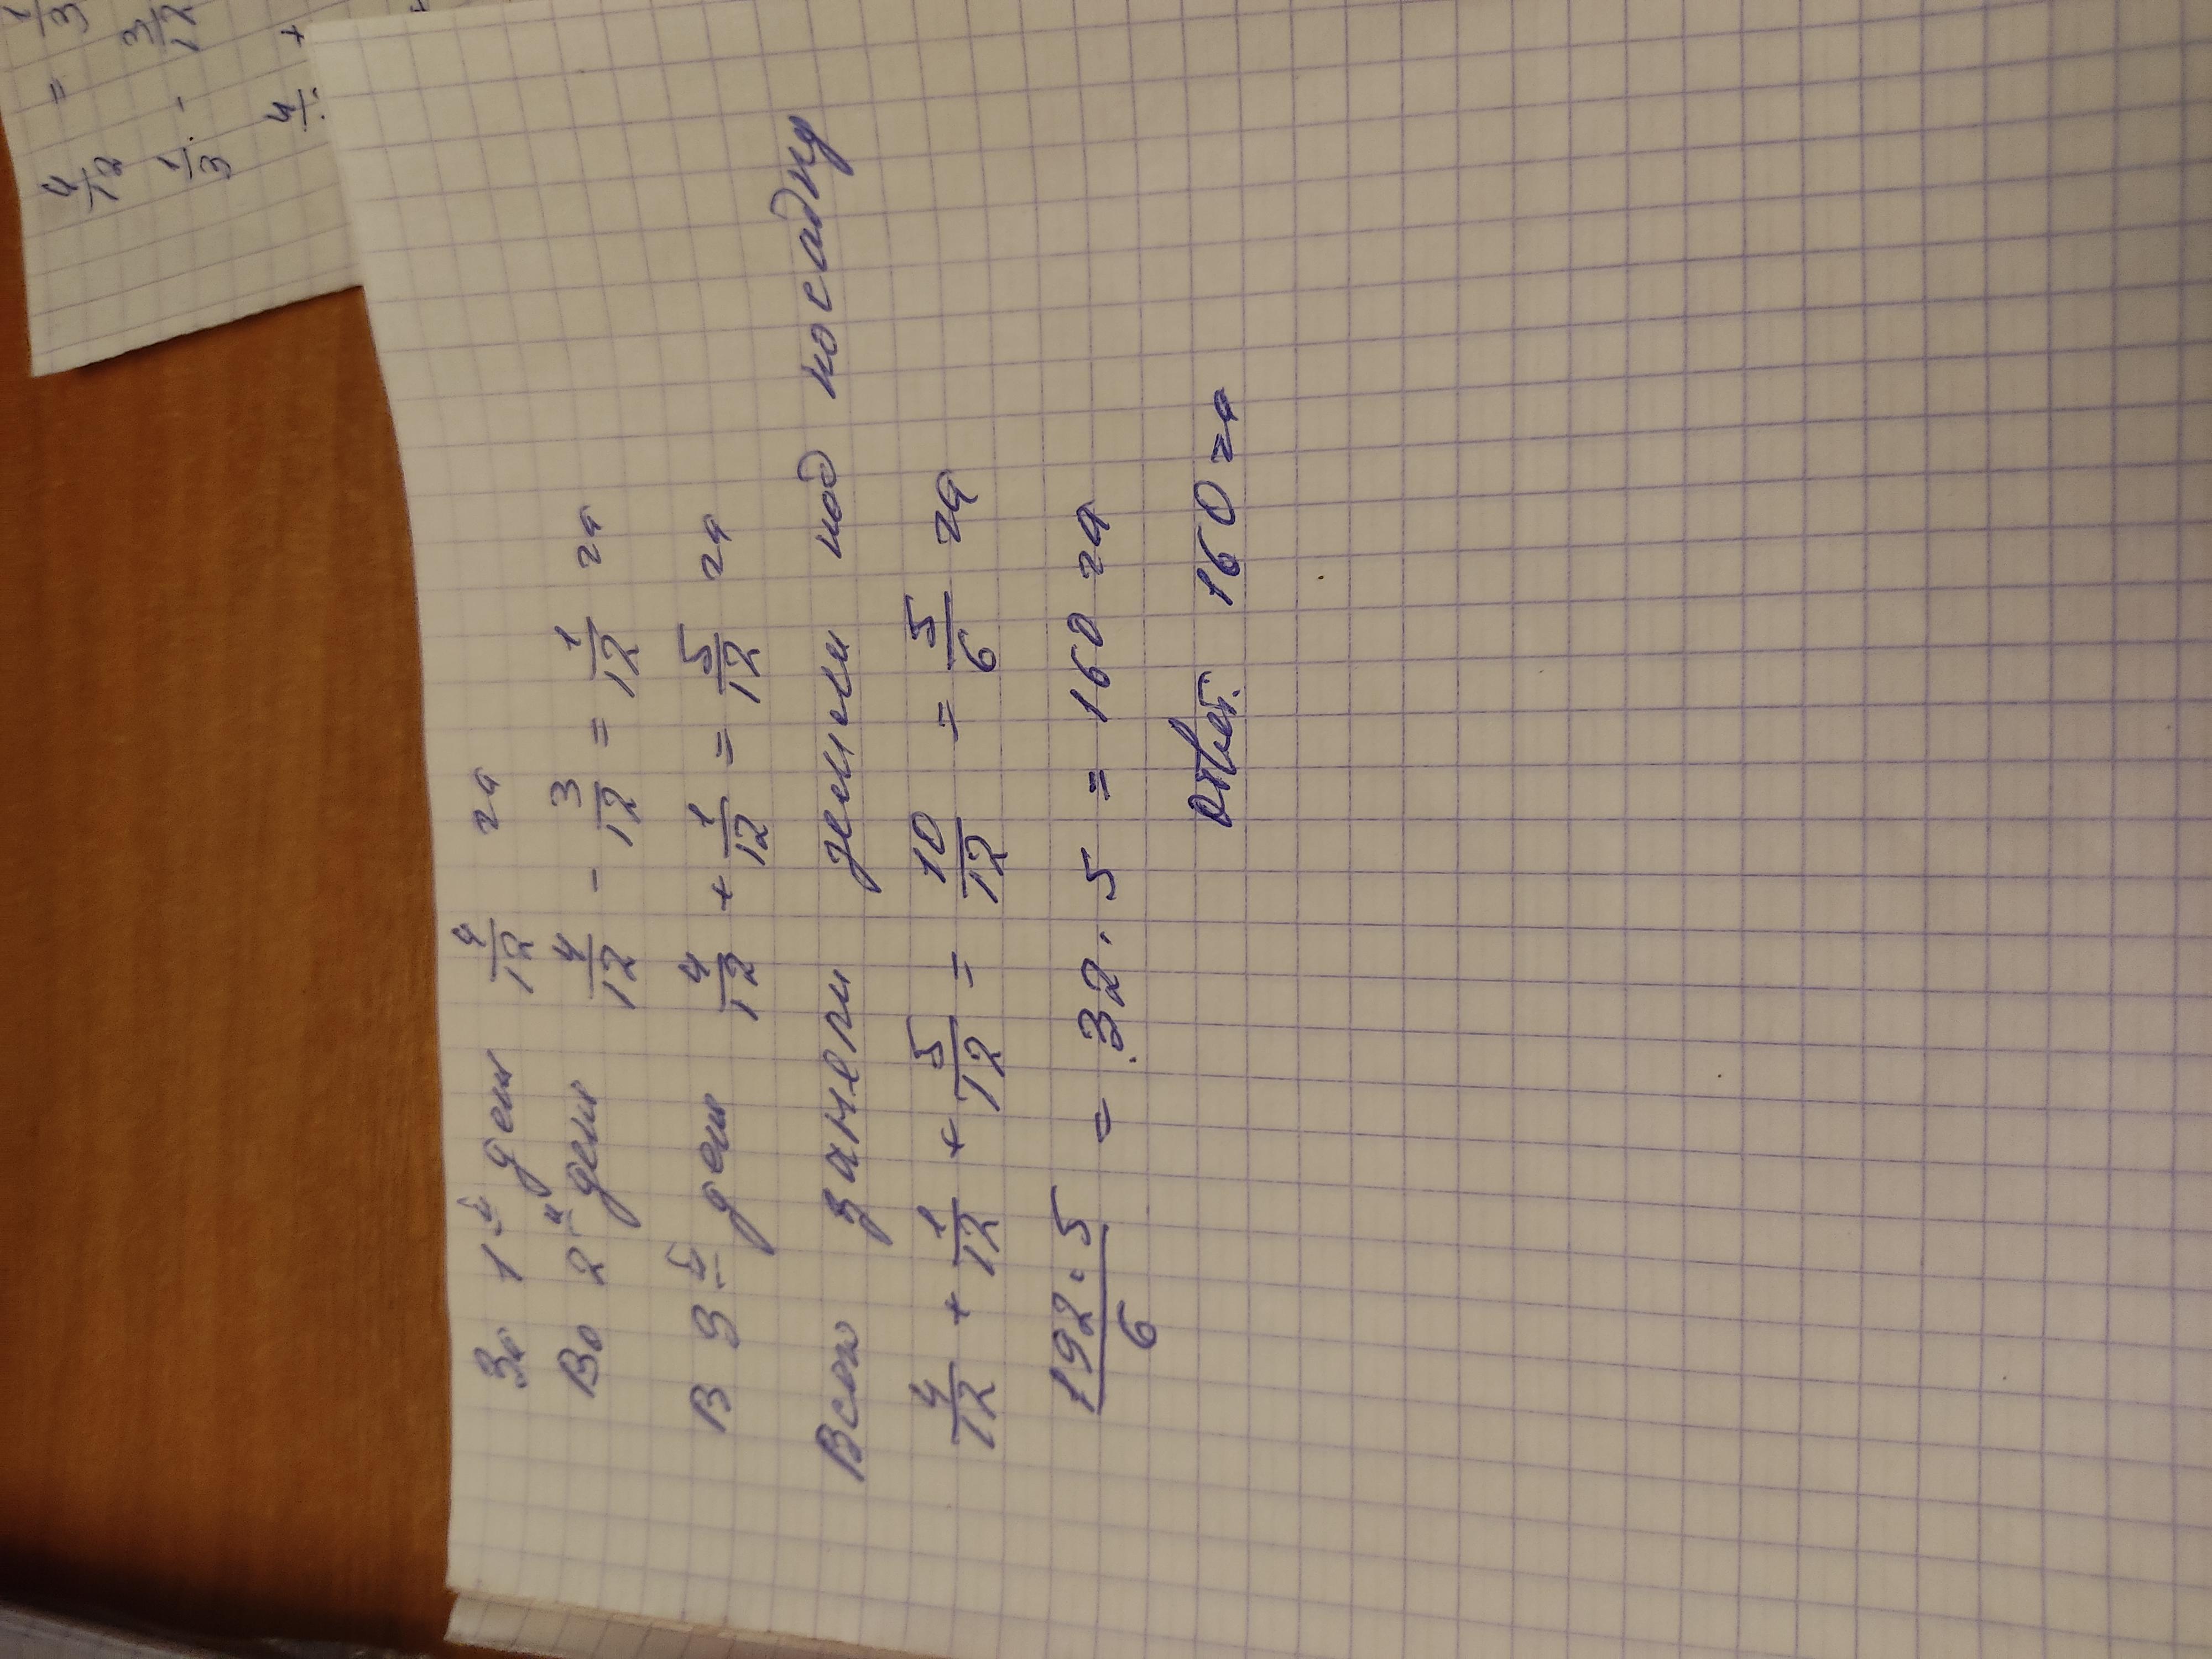 4/12 = 1/3
1/3 - 3/12
4 +
За 1й день 4/12 га
Во 2й день 4/12 - 3/12 = 1/12 га
В 3й день 4/12 + 1/12 = 5/12 га
Всего заняли земли под посадку
4/12 + 1/12 + 5/12 = 10/12 = 5/6 га
192·5/6 = 32·5 = 160 га
Ответ: 160 га